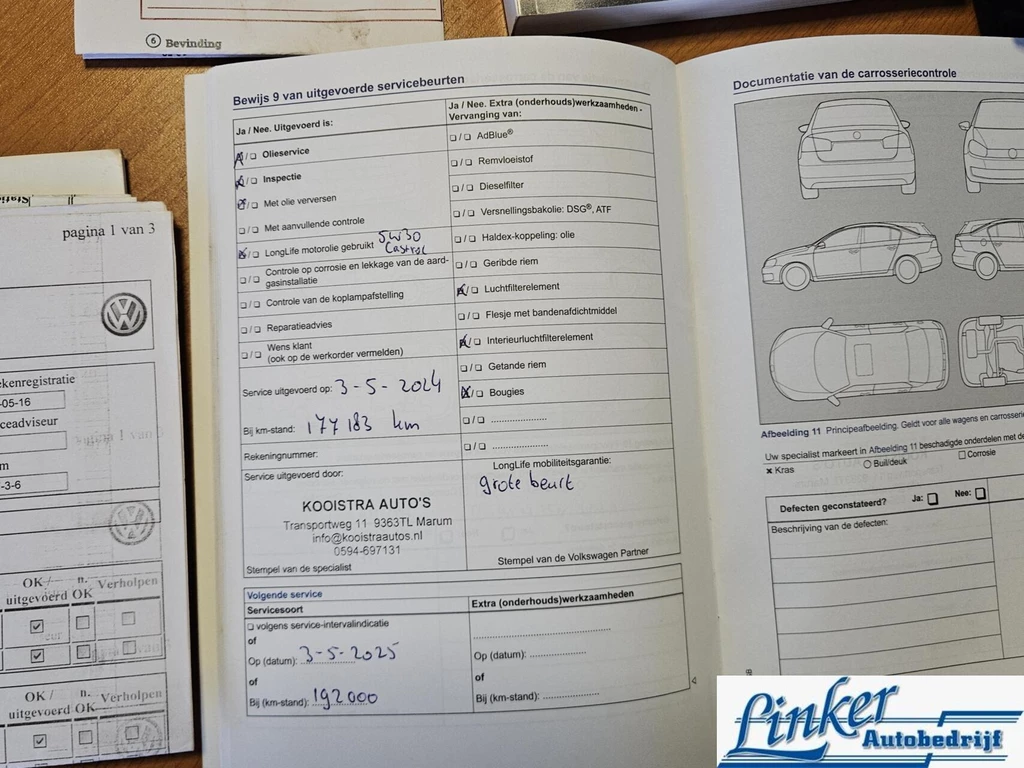 6 Bevinding
pagina 1 van 3
ekenregistratie
-05-16
ceadviseur
m
-3-6
OK / n. Verholpen
uitgevoerd OK
OK / n. Verholpen
uitgevoerd OK
Bewijs 9 van uitgevoerde servicebeurten
Ja / Nee. Uitgevoerd is:
Olieservice
Inspectie
Met olie verversen
Met aanvullende controle
LongLife motorolie gebruikt 5W30
Castrol
Controle op corrosie en lekkage van de aard-
gasinstallatie
Controle van de koplampafstelling
Reparatieadvies
Wens klant
(ook op de werkorder vermelden)
Service uitgevoerd op: 3-5-2024
Bij km-stand: 177183 km
Rekeningnummer:
Service uitgevoerd door:
KOOISTRA AUTO'S
Transportweg 11 9363TL Marum
info@kooistraautos.nl
0594-697131
Stempel van de specialist
Ja / Nee. Extra (onderhouds)werkzaamheden -
Vervanging van:
AdBlue®
Remvloeistof
Dieselfilter
Versnellingsbakolie: DSG®, ATF
Haldex-koppeling: olie
Geribde riem
Luchtfilterelement
Flesje met bandenafdichtmiddel
Interieurluchtfilterelement
Getande riem
Bougies
LongLife mobiliteitsgarantie:
grote beurt
Stempel van de Volkswagen Partner
Volgende service
Servicesoort
volgens service-intervalindicatie
of
Op (datum): 3-5-2025
of
Bij (km-stand): 192000
Extra (onderhouds)werkzaamheden
Op (datum): ....................
of
Bij (km-stand): ....................
Documentatie van de carrosseriecontrole
Afbeelding 11 Principeafbeelding. Geldt voor alle wagens en carrosserie
Uw specialist markeert in Afbeelding 11 beschadigde onderdelen met de
x Kras Buil/deuk Corrosie
Defecten geconstateerd? Ja: Nee:
Beschrijving van de defecten:
Linker
Autobedrijf